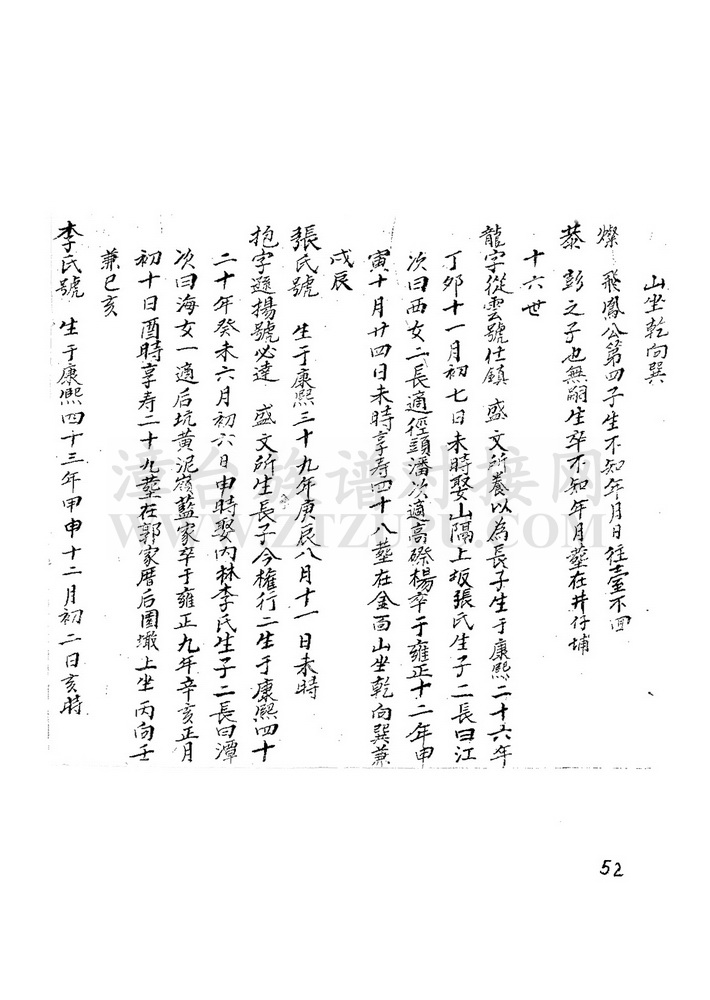 山坐乾向巽
燦 飛鳳公第四子生不知年月日往臺不回
恭 彭之子也無嗣生卒不知年月塟在井仔埔
十六世
龍字從雲號仕鎮 盛文所養以為長子生于康熙二十六年
丁卯十一月初七日未時娶山隔上坂張氏生子二長曰江
次曰西女二長適徑頭潘次適高磜楊卒于雍正十二年申
寅十月廿四日未時享寿四十八塟在金面山坐乾向巽兼
戌辰
張氏號 生于康熙三十九年庚辰八月十一日未時
抱字遜揚號必達 盛文所生長子今權行二生于康熙四十
二十年癸未六月初六日申時娶内林李氏生子二長曰潭
次曰海女一適后坑黄泥嶺藍家卒于雍正九年辛亥正月
初十日酉時享寿二十九塟在郭家厝后園墘上坐丙向壬
兼巳亥
李氏號 生于康熙四十三年甲申十二月初二日亥時
漳台族谱对接网
WWW.ZTZUPU.COM
52